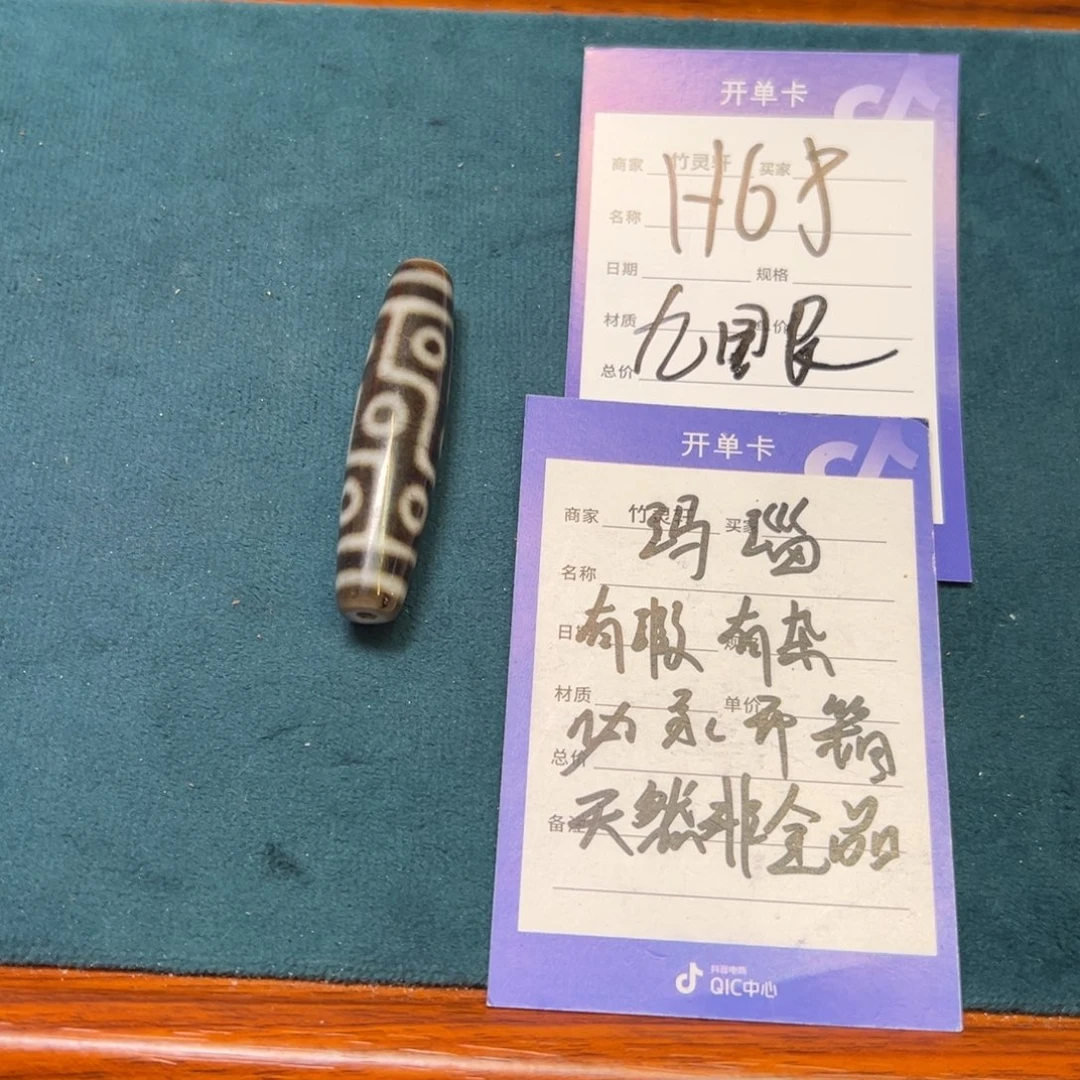 开单卡
商家 竹灵轩 买家
名称
日期 规格
材质 价
总价
九眼
开单卡
商家 竹灵轩 买家
玛瑙
名称
日 规
有瑕有杂
材质 单价
总价
备注
天然非全品
抖音电商
QIC中心